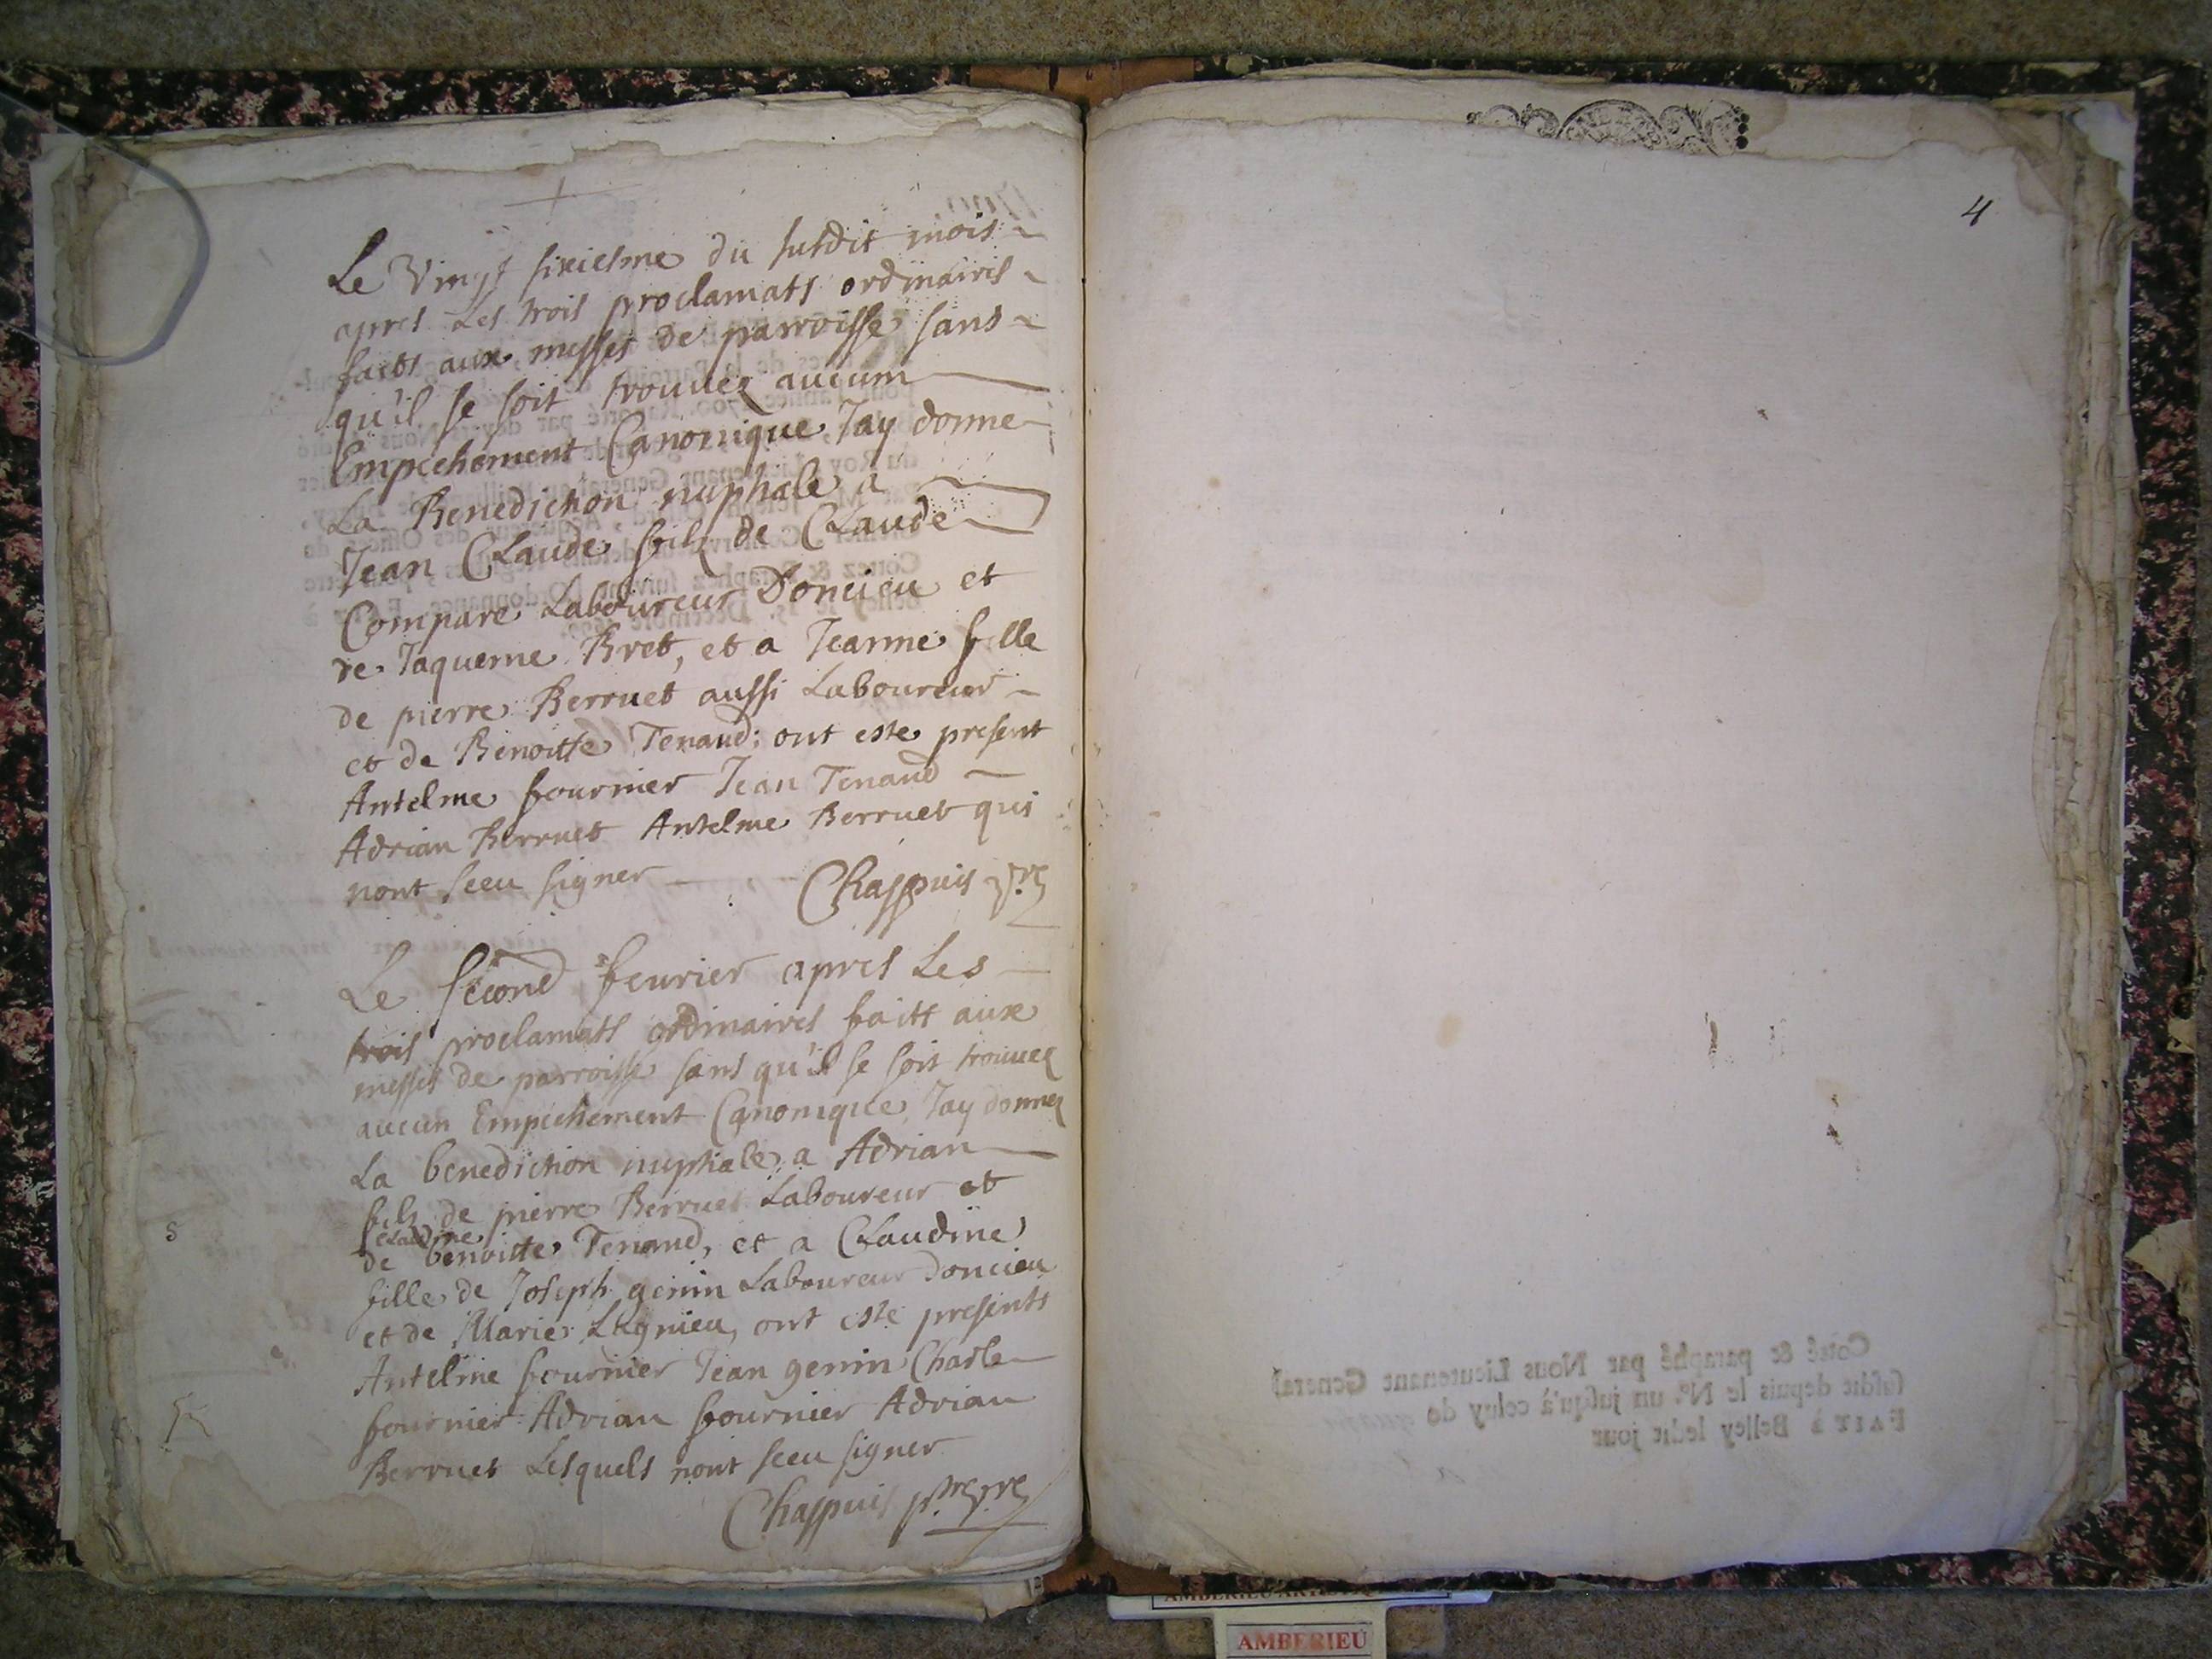 Le Vingt sixiesme du susdit mois
apres Les trois proclamats ordinaires
faicts aux messes de parroisse sans
qu'il se soit trouuez aucum
Empechement Canonique Jay donne
La Benediction nuptiale a
Jean Claude filz de Claude
Compare Laboureur Doncieu et
de Jaqueme Bret, et a Jeanne fille
de pierre Berruet aussi Laboureur
et de Benoitte Tenaud; ont este present
Antelme fournier Jean Tenaud
Adrian Berruet Antelme Berruet qui
nont sceu signer
Chappuis ptre
Le second feurier apres Les
trois proclamats ordinaires faitt aux
messes de parroisse sans qu'il se soit trouuez
aucun Empechement Canonique, Jay donnez
La benediction nuptiale, a Adrian
filz de pierre Berruet Laboureur et
claudine
de benoitte Tenaud, et a Claudine
fille de Joseph genin Laboureur doncieu
et de Marie Lagnieu, ont este presents
Antelme fournier Jean genin Charle
fournier Adrian fournier Adrian
Berruet Lesquels nont sceu signer
Chappuis ptre
4
Cotté & paraphé par Nous Lieutenant General
susdit depuis le No. un jusqu'à celuy de
FAIT à Belley ledit jour
AMBERIEU